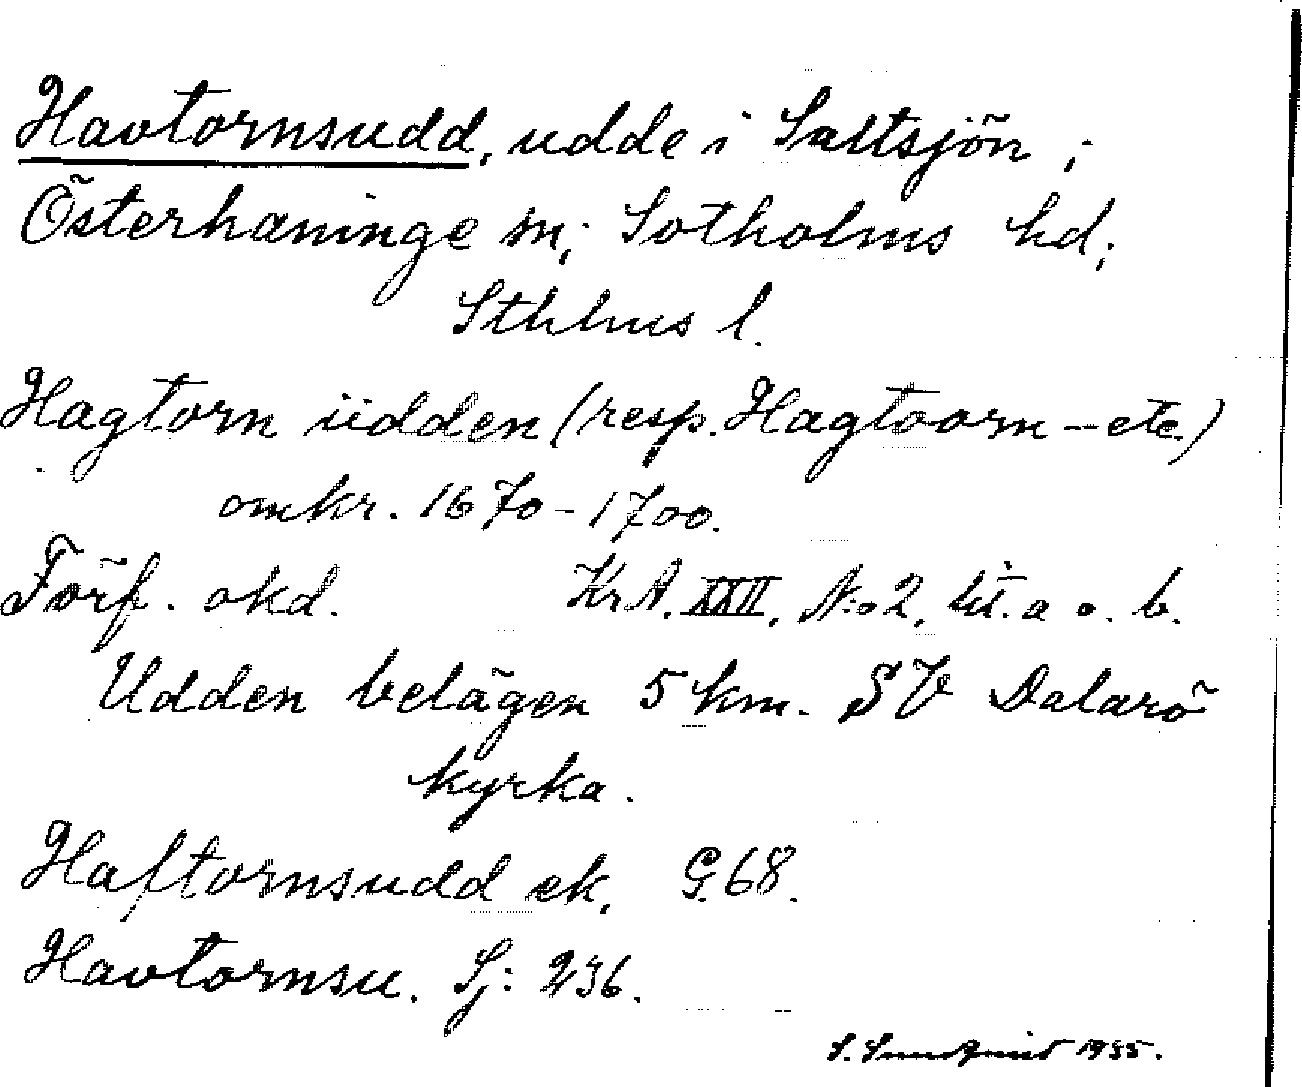 Havtornsudd, udde i Saltsjön,
Österhaninge sn; Sotholms hd;
Sthlms l.
Hagtorn üdden (resp. Hagtoorn - etc.)
omkr. 1670-1700.
Förf. okd. KrA. XXII, N:o 2, lit. a o. b.
Udden belägen 5 km. SV Dalarö
kyrka.
Haftornsudd ek. G.68.
Havtornsu. Sj: 236.
S. Sundqvist 1935.